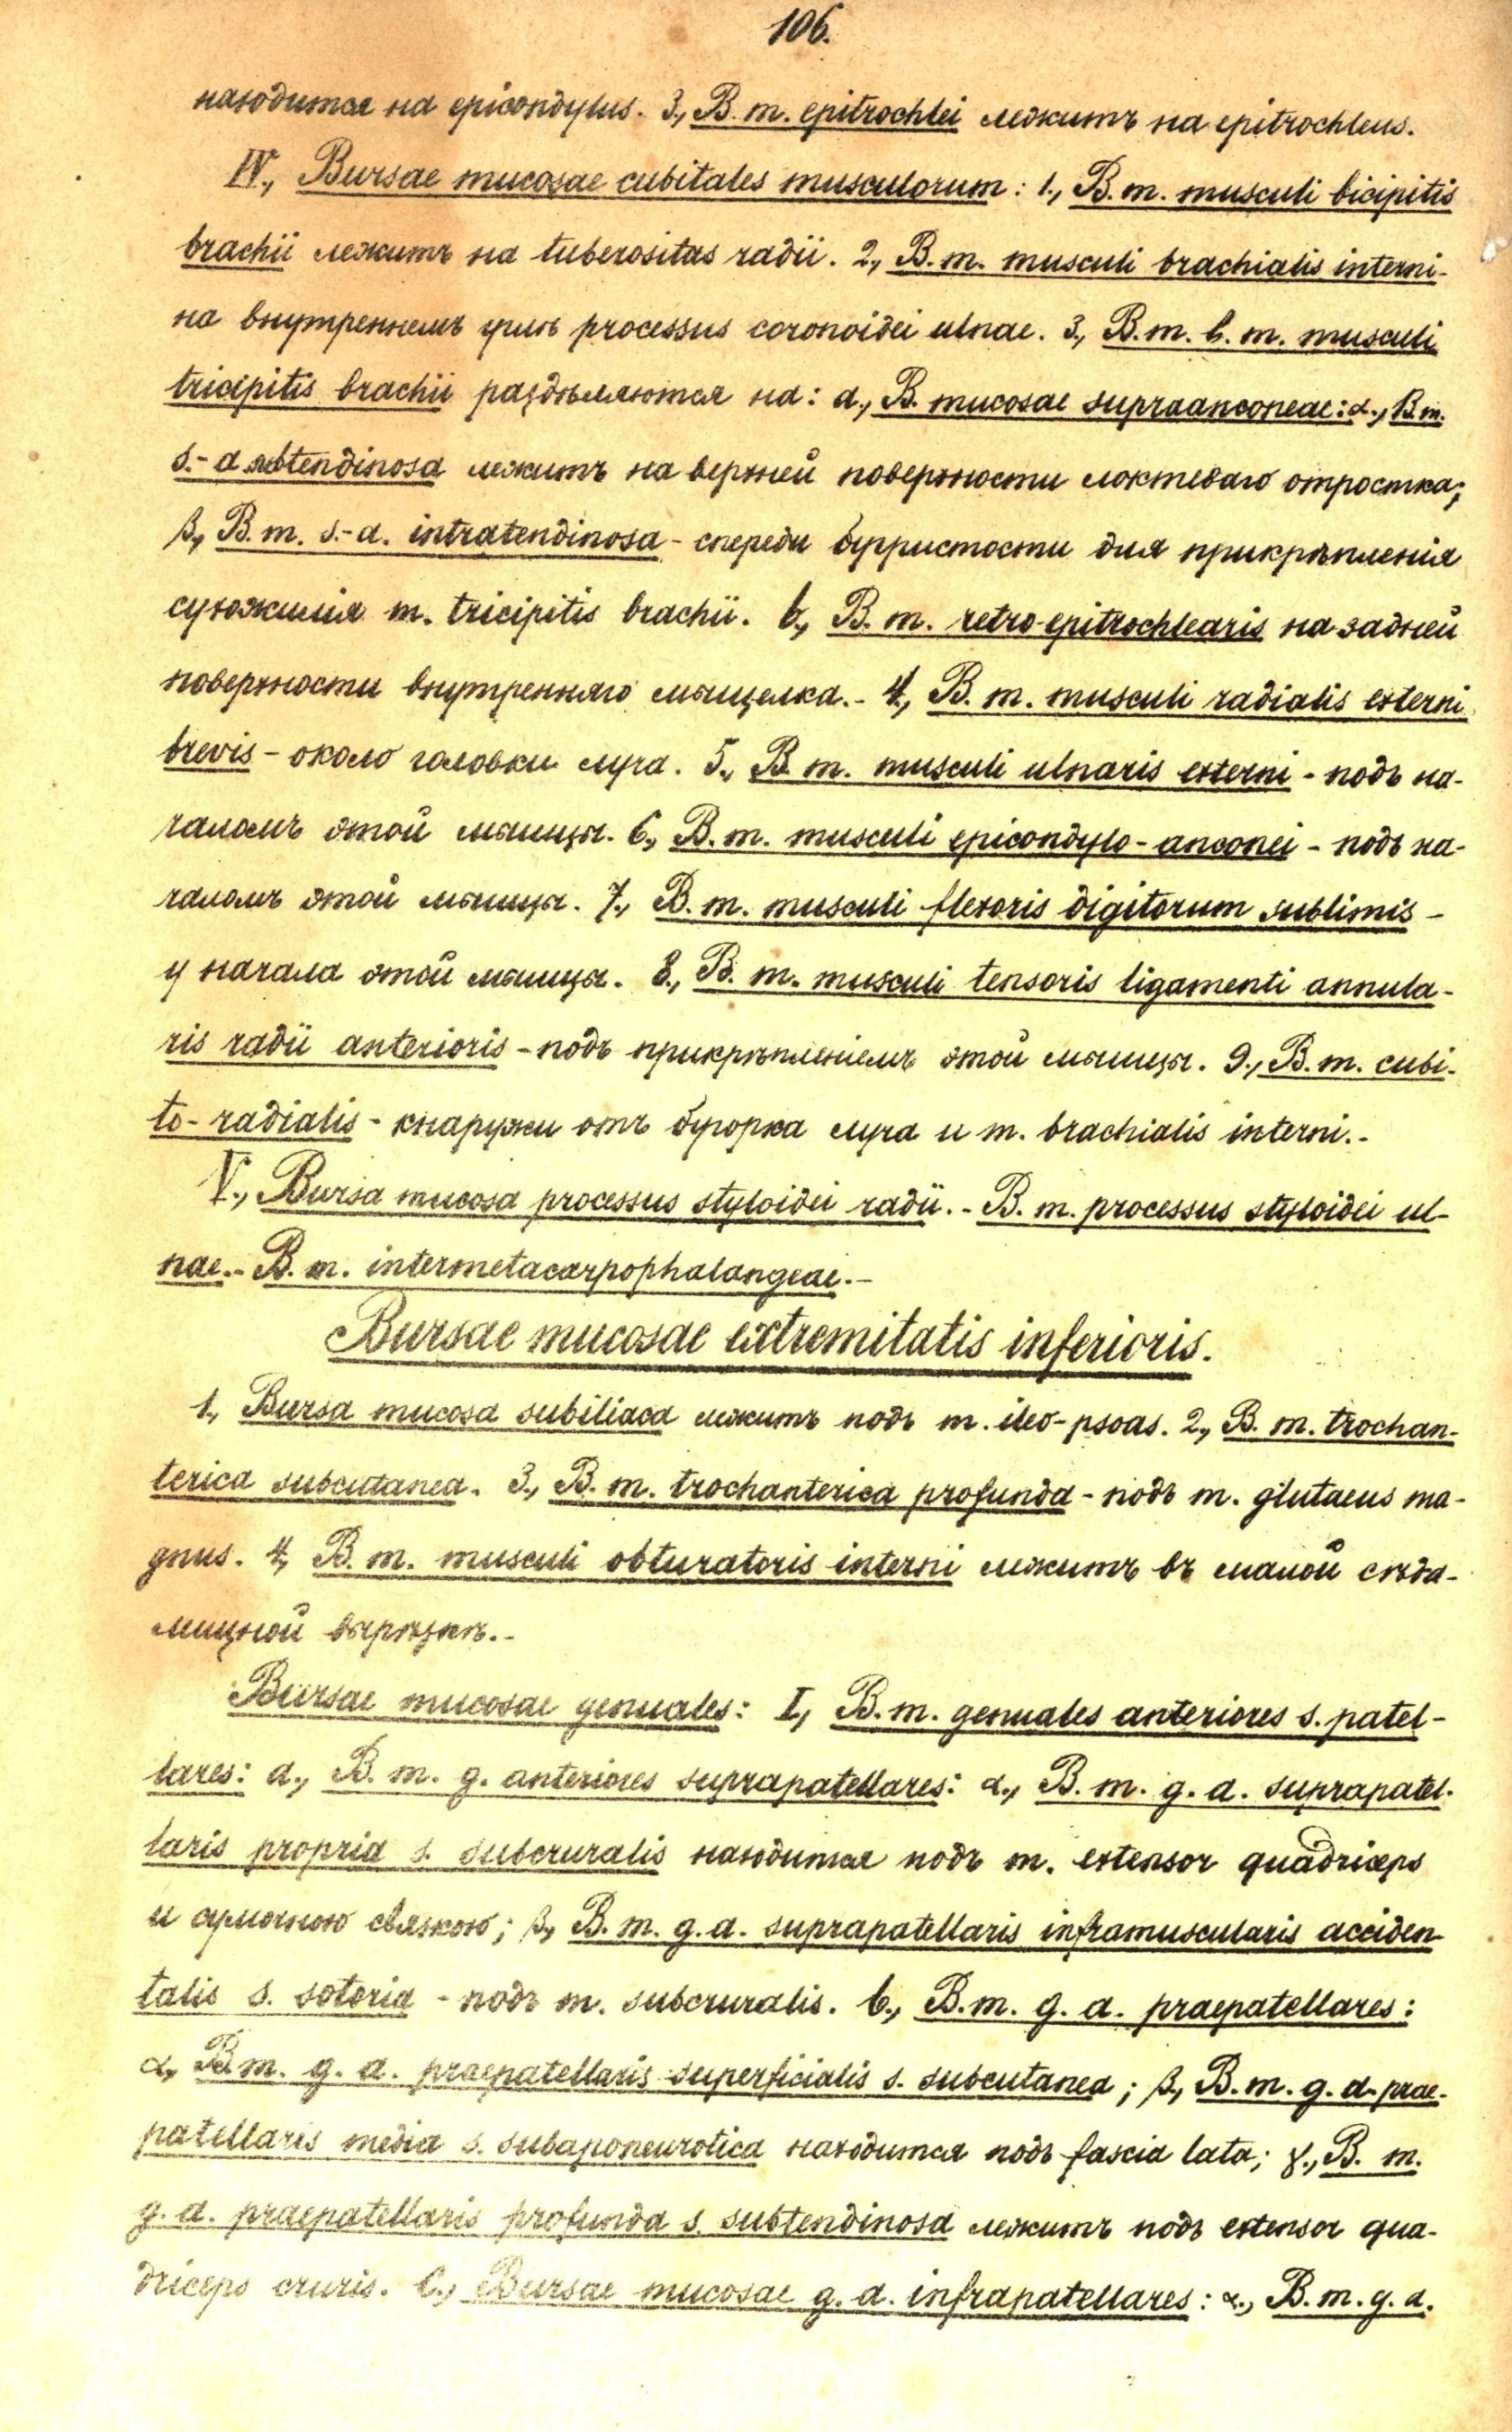 106.
находится на epicondylus. 3., B. m. epitrochlei лежитъ на epitrochleus.
IV., Bursae mucosae cubitales musculorum: 1., B. m. musculi bicipitis
brachii лежитъ на tuberositas radii. 2., B. m. musculi brachialis interni-
на внутреннемъ углѣ processus coronoidei ulnae. 3., B. m. b. m. musculi
tricipitis brachii раздѣляются на: a., B. mucosae supraanconeae: α., B. m.
s.-a subtendinosa лежитъ на верхней поверхности локтеваго отростка;
β., B. m. s.-a. intratendinosa - спереди бугристости для прикрѣпленія
сухожилія m. tricipitis brachii. b., B. m. retro-epitrochlearis на задней
поверхности внутренняго мыщелка.- 4., B. m. musculi radialis externi
brevis - около головки луча. 5., B. m. musculi ulnaris externi - подъ на-
чаломъ этой мышцы. 6., B. m. musculi epicondylo-anconei - подъ на-
чаломъ этой мышцы. 7., B. m. musculi flexoris digitorum sublimis -
у начала этой мышцы. 8., B. m. musculi tensoris ligamenti annula-
ris radii anterioris - подъ прикрѣпленіемъ этой мышцы. 9., B. m. cubi-
to-radialis - кнаружи отъ бугорка луча и m. brachialis interni.-
V., Bursa mucosa processus styloidei radii.- B. m. processus styloidei ul-
nae.- B. m. intermetacarpophalangeae.-
Bursae mucosae extremitatis inferioris.
1., Bursa mucosa subiliaca лежитъ подъ m. ileo-psoas. 2., B. m. trochan-
terica subcutanea. 3., B. m. trochanterica profunda - подъ m. glutaeus ma-
gnus. 4., B. m. musculi obturatoris interni лежитъ въ малой сѣда-
лищной вырѣзкѣ.-
Bursae mucosae genuales: I., B. m. genuales anteriores s. patel-
lares: a., B. m. g. anteriores suprapatellares: α., B. m. g. a. suprapatel-
laris propria s. subcruralis находится подъ m. extensor quadriceps
и сумочною связкою; β., B. m. g. a. suprapatellaris inframuscularis acciden-
talis s. sotoria - подъ m. subcruralis. b., B. m. g. a. praepatellares:
α., B. m. g. a. praepatellaris superficialis s. subcutanea; β., B. m. g. a. prae-
patellaris media s. subaponeurotica находится подъ fascia lata; γ., B. m.
g. a. praepatellaris profunda s. subtendinosa лежитъ подъ extensor qua-
driceps cruris. C., Bursae mucosae g. a. infrapatellares: α., B. m. g. a.